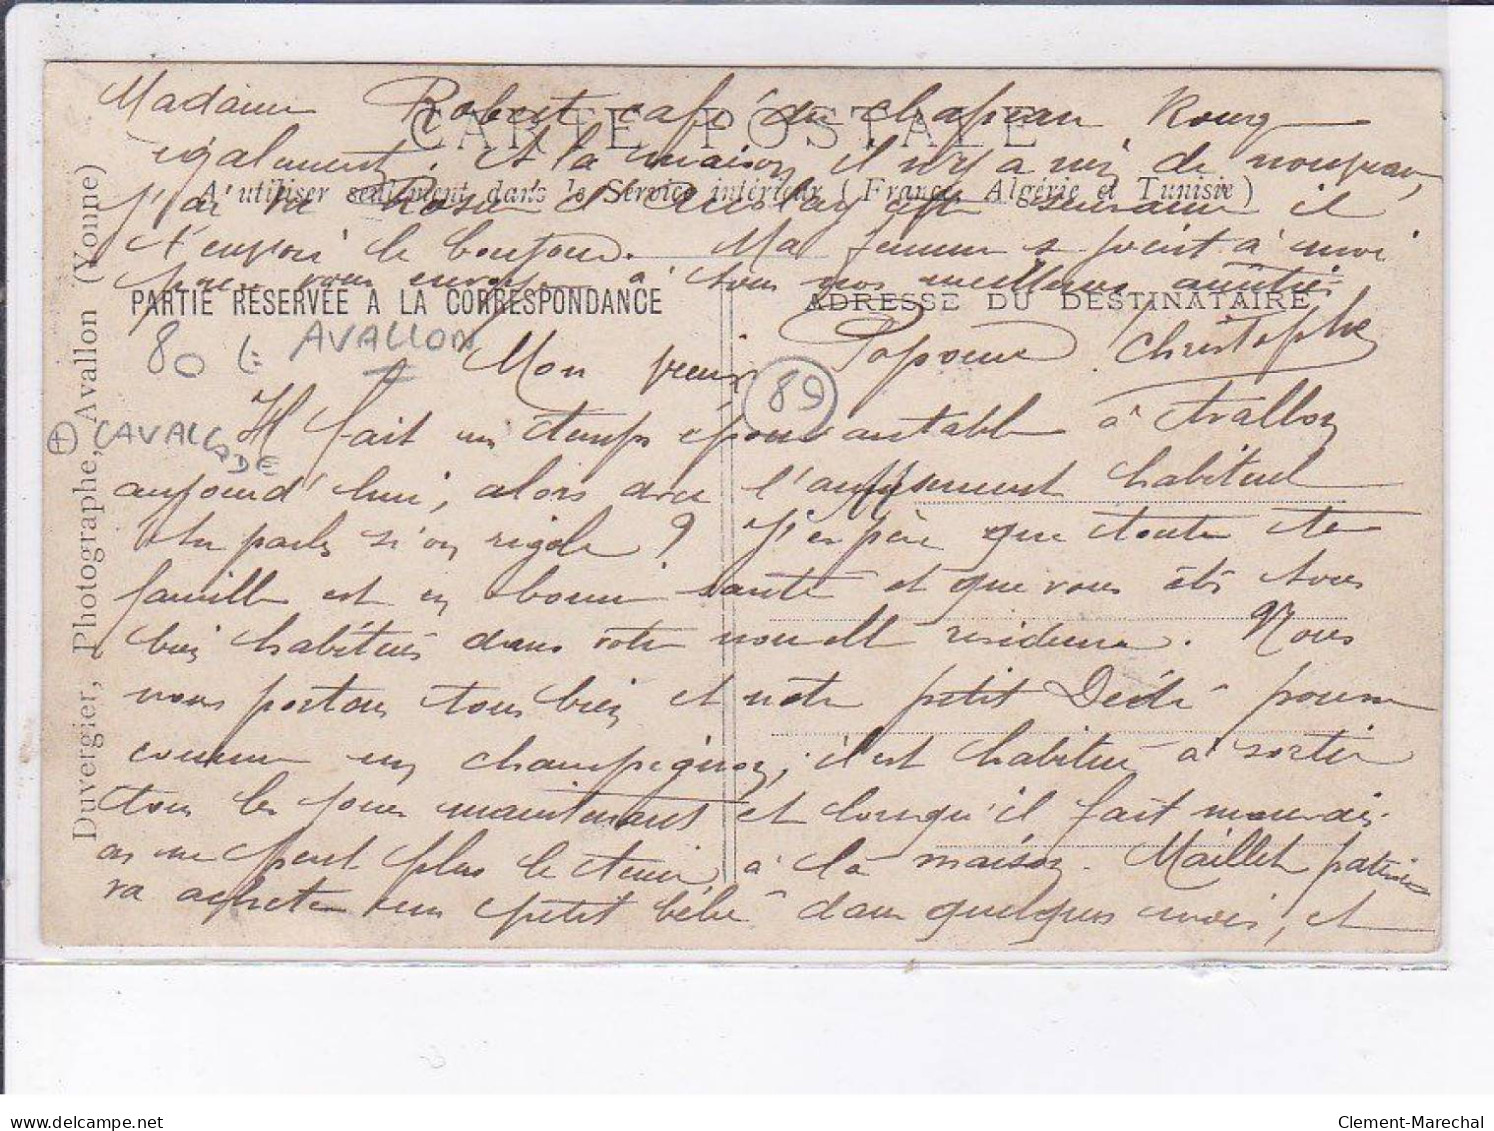 Madame Robert café du chapeau Roug
également. et à la maison il n'y a rien de nouveau,
CARTE POSTALE
A utiliser seulement dans le Service intérieur (France, Algérie et Tunisie)
J'ai vu il
t'envoie le bonjour. Ma femme s joint à moi
pour vous envoyer à tous nos meilleures amitiés
PARTIE RÉSERVÉE A LA CORRESPONDANCE
ADRESSE DU DESTINATAIRE
Christophe
80 € AVALLON
89
CAVALCADE
Duvergier, Photographe, Avallon (Yonne)
Mon vieux
Il fait un temps épouvantable à Avallon
aujourd'hui, alors avec l'amusement habituel
tu parles si on rigole ? J'espère que toute ta
famille est en bonne santé et que vous êtes tous
bien habitués dans votre nouvelle residence. Nous
nous portons tous bien et notre petit Dédé pousse
comme un champignon, il est habitué à sortir
tous les jours maintenant et lorsqu'il fait mauvais
on ne peut plus le tenir à la maison. Maillet
va acheter un petit bébé dans quelques mois, et
Clement-Marechal
delcampe.net